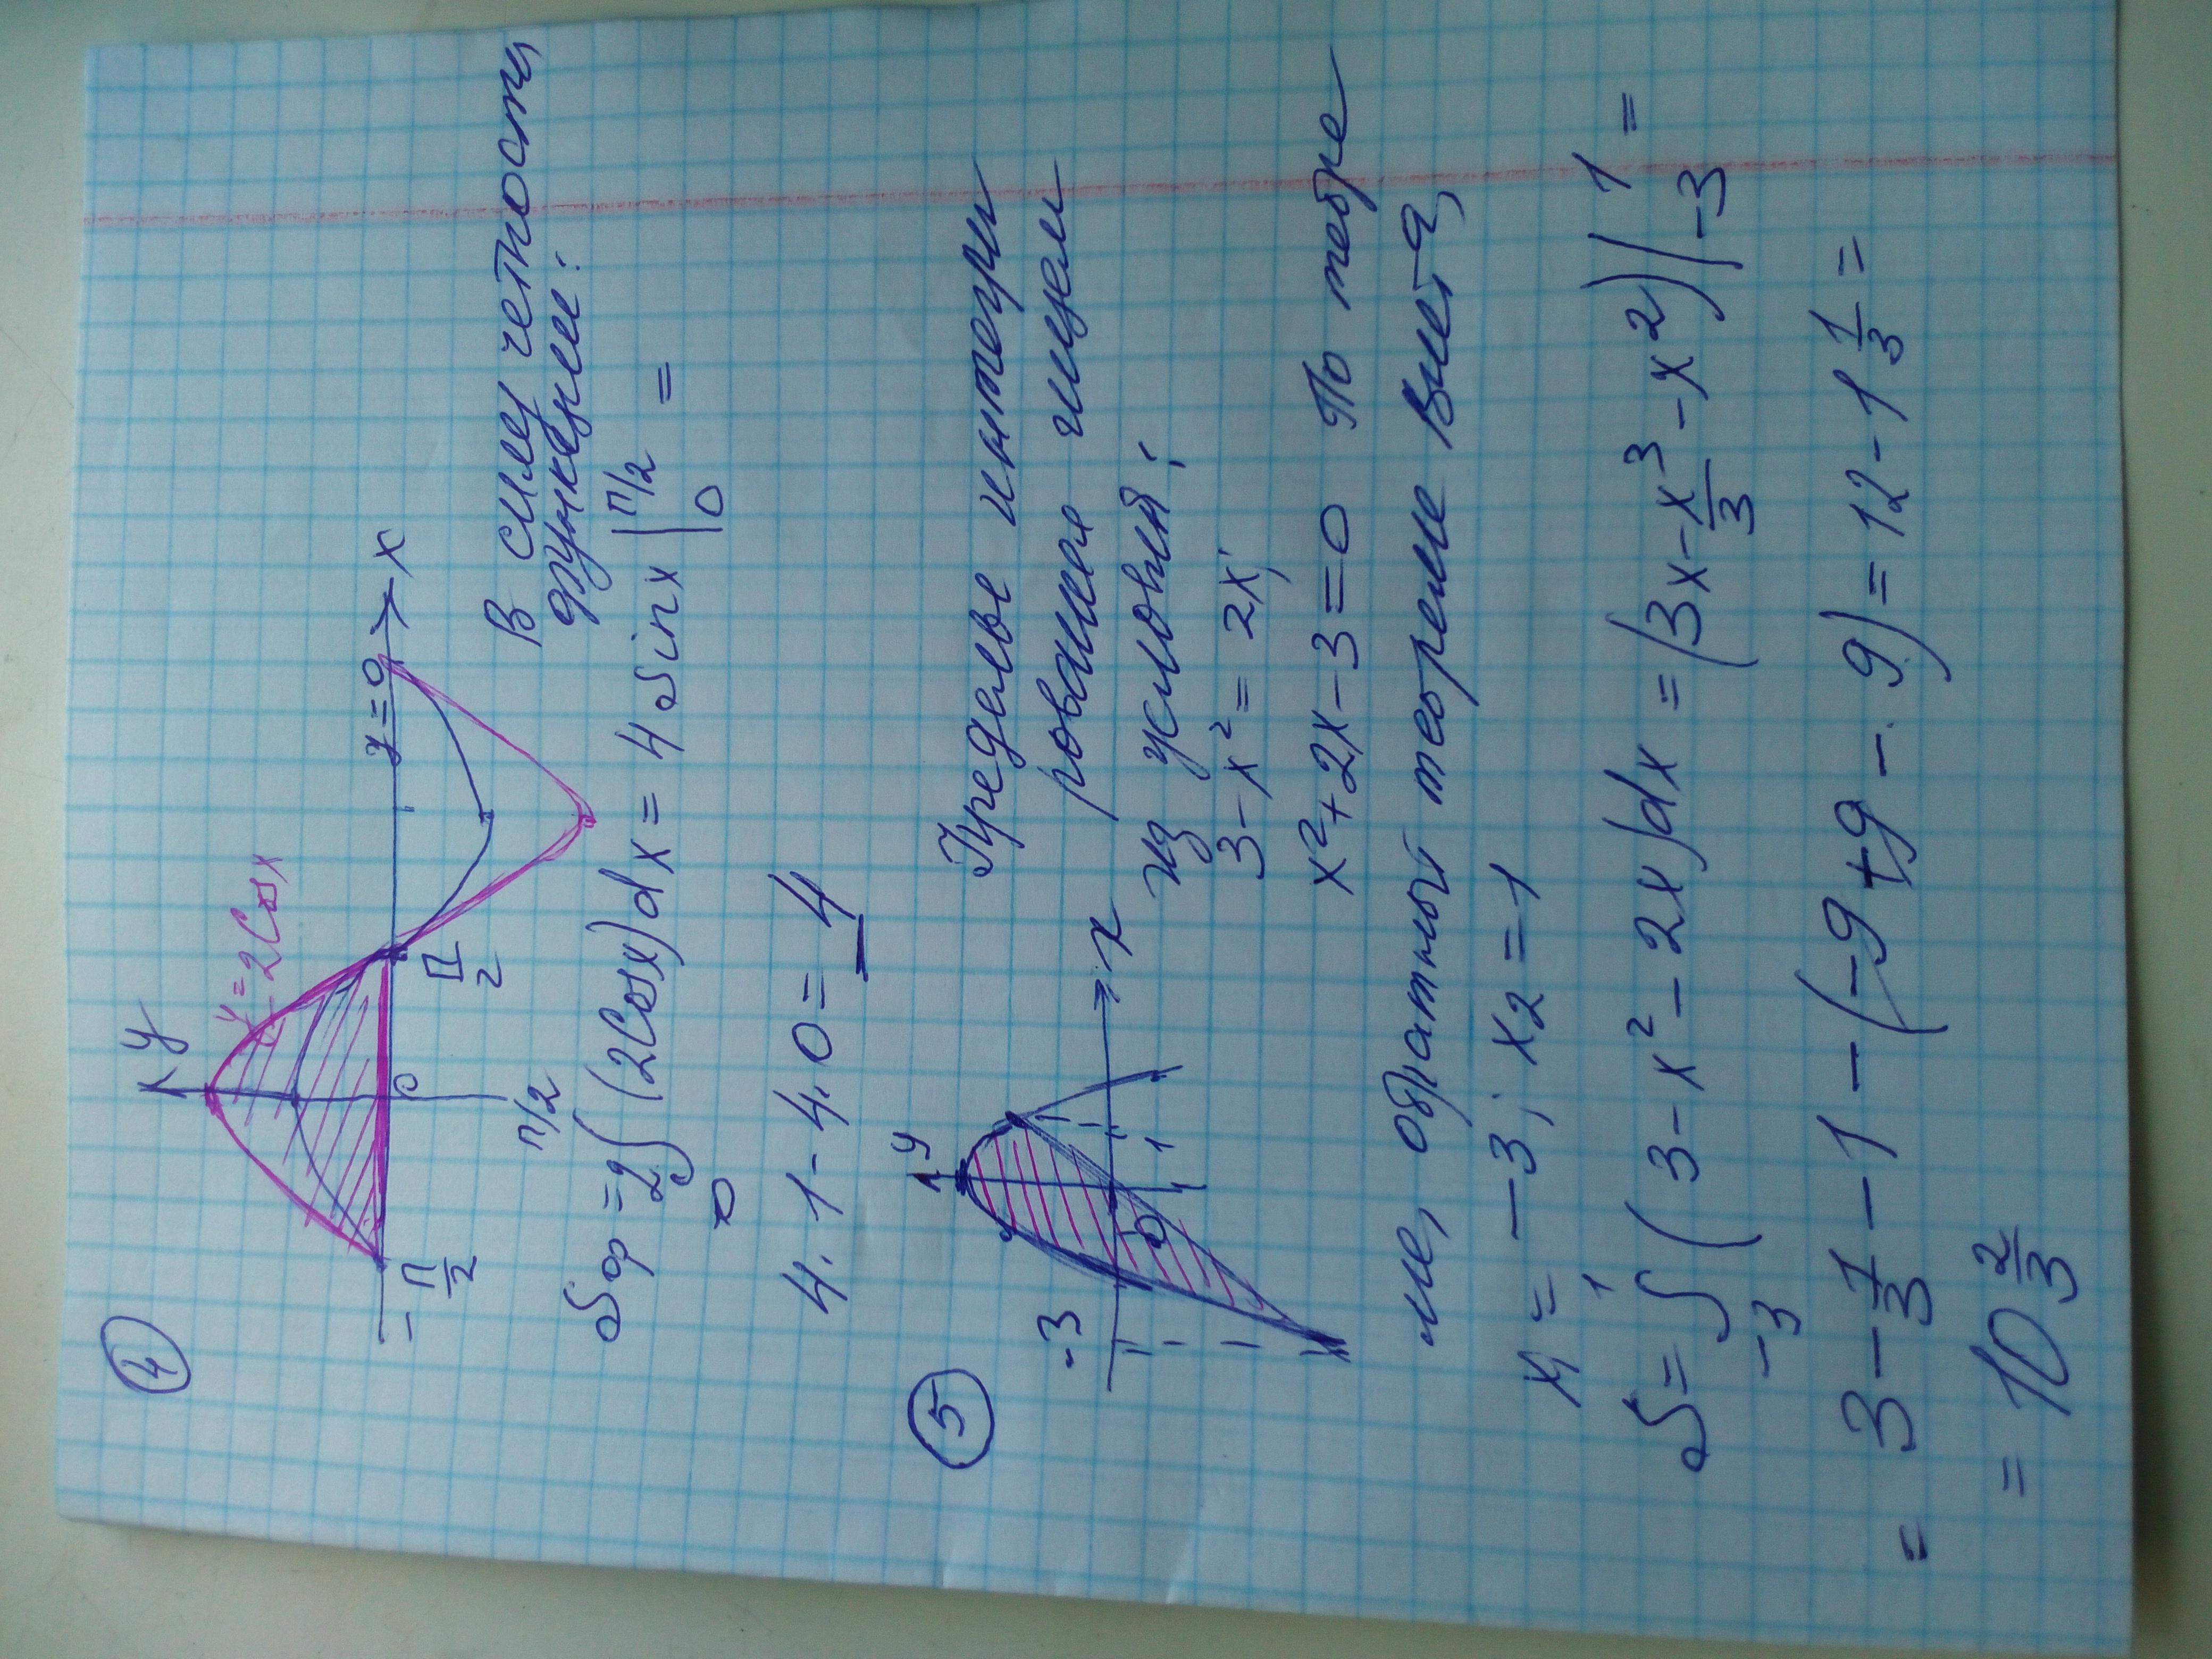 ④
y
y = 2Cosx
y=0
x
-π/2
0
π/2
В силу четности
функции:
Sф = 2∫₀^(π/2) (2Cosx)dx = 4 Sinx |₀^(π/2) =
4·1 - 4·0 = 4
⑤
y
-3
0
1
x
Пределы интегри
рования ищем
из условия:
3 - x² = 2x;
x² + 2x - 3 = 0 По теоре
ме, обратной теореме Виета,
x₁ = -3; x₂ = 1
S = ∫₋₃¹ (3 - x² - 2x)dx = (3x - x³/3 - x²)|₋₃¹ =
= 3 - 1/3 - 1 - (-9 + 9 - 9) = 12 - 1 1/3 =
= 10 2/3